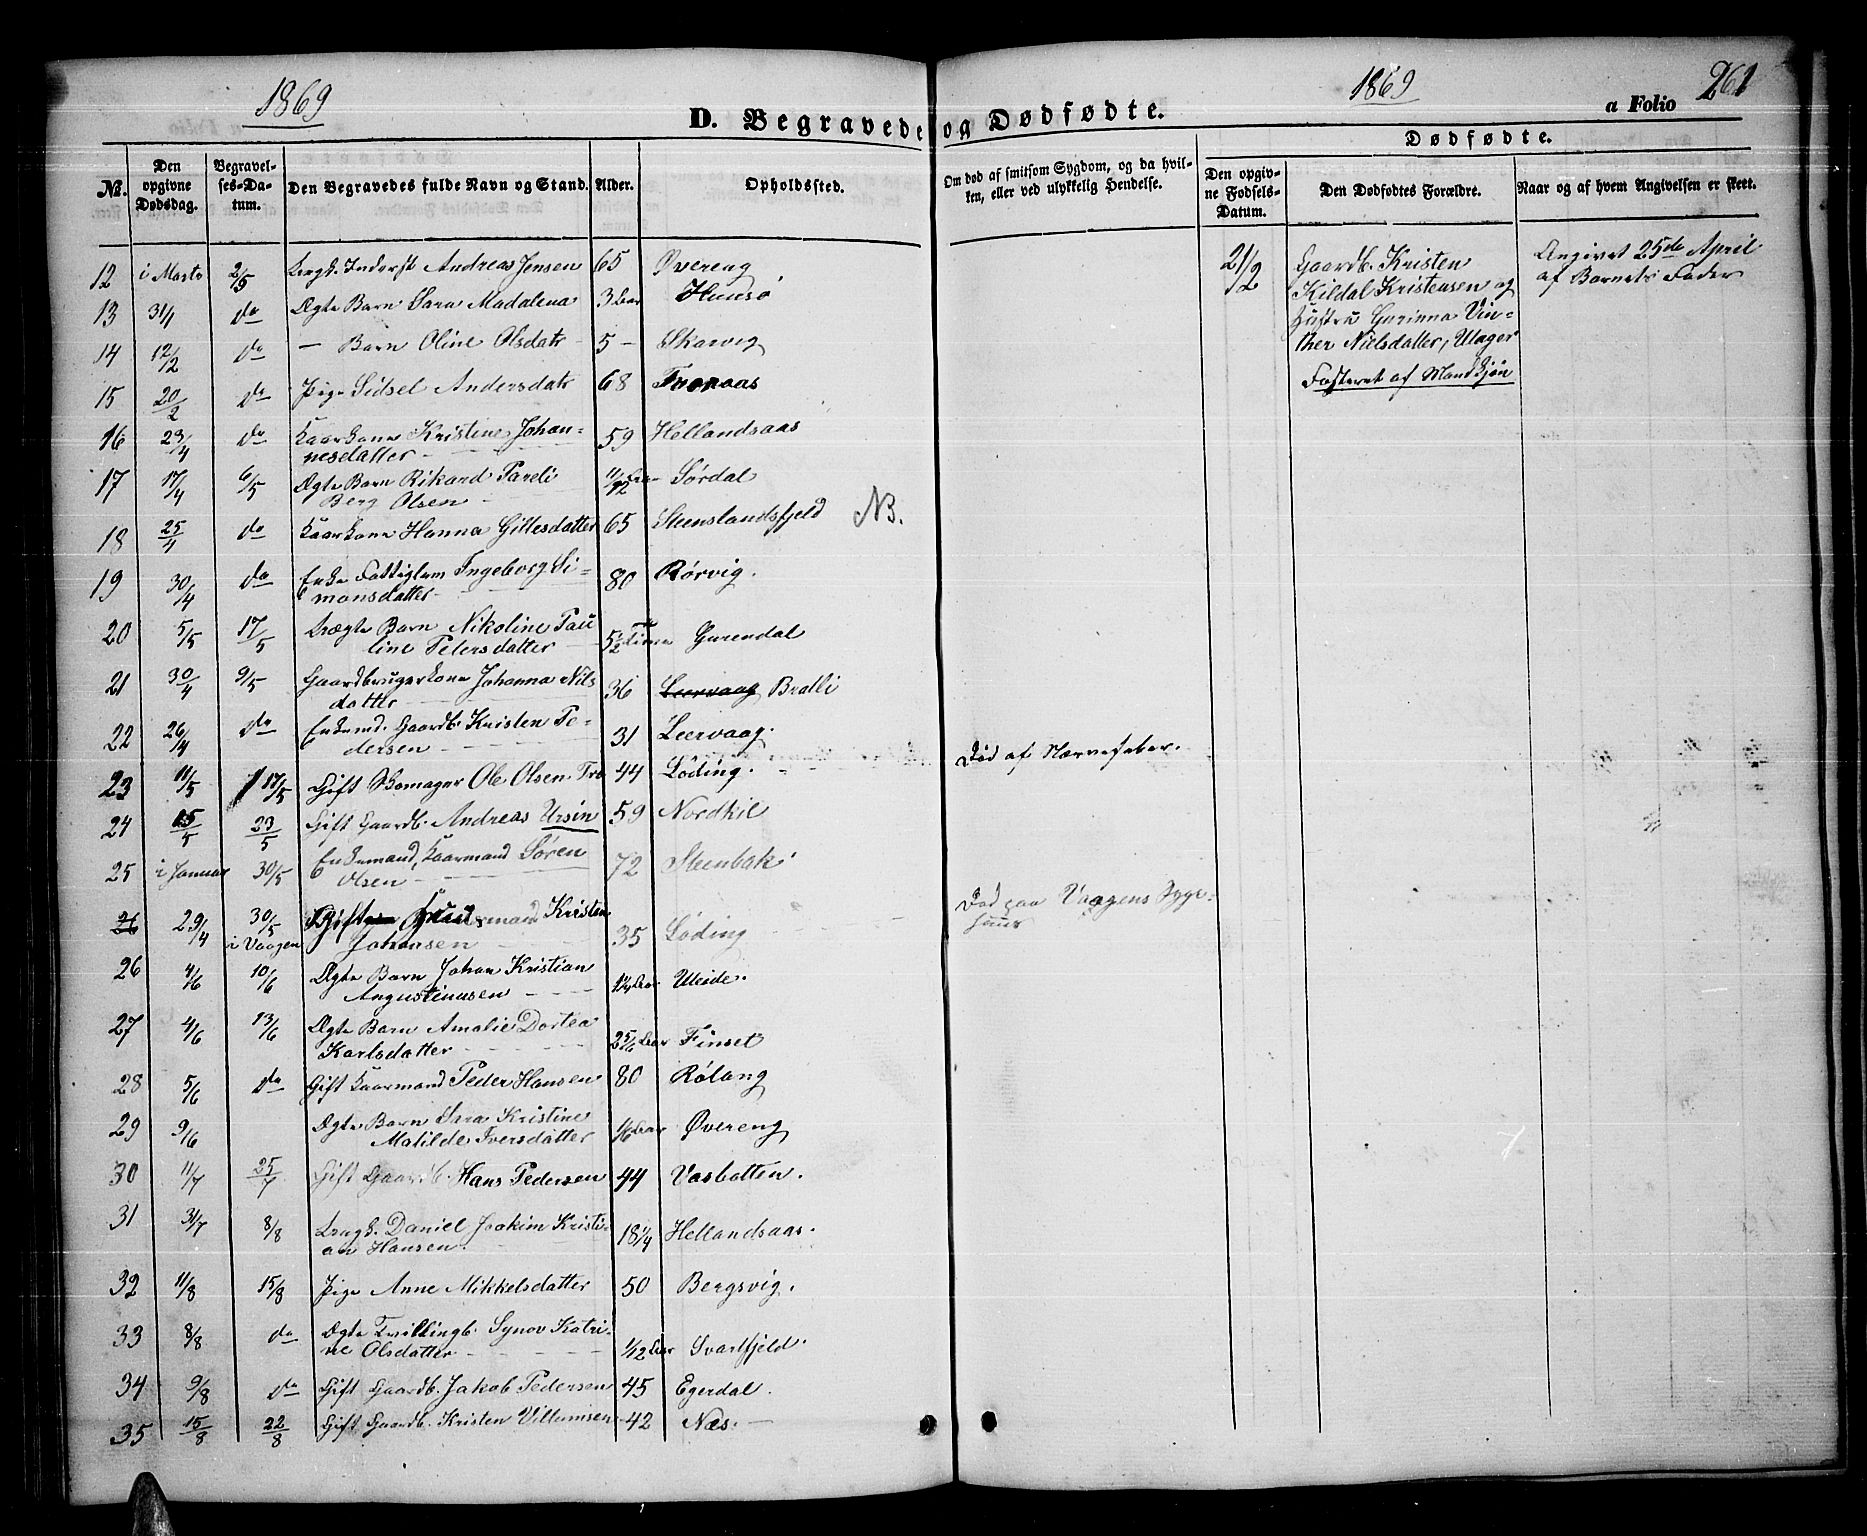 1869
1869
261
D. Begravede og Dødfødte.
a Folio
Dødfødte.
No.
Den opgivne Dødsdag.
Begravelses-Datum.
Den Begravedes fulde Navn og Stand.
Alder.
Opholdssted.
Om død af smitsom Sygdom, og da hvilken, eller ved ulykkelig Hendelse.
Den opgivne Fødsels-Datum.
Den Dødfødtes Forældre.
Naar og af hvem Angivelsen er skeet.
12 i Marts 2/5 Andreas Jensen 65 Øvereng
13 31/1 do Ægte Barn Sara Madalena 3 Uger
14 12/2 do — Barn Oline Olsdatr 5 — Skarvig
15 20/2 do Pige Sidsel Andersdatr 68 Tranaas
16 23/4 do Kaarkone Kristine Johan- 59 Hellandsaas
nesdatter
17 17/4 6/5 Ægte Barn Rikard Pareli 11/12 Sørdal
Berg Olsen
18 25/4 do Kaarkone Hanna Gittesdatter 65 Steenslandsfjeld NB.
19 30/4 do Enke Fattiglem Ingeborg Si- 80 Rørvig.
monsdatter
20 5/5 17/5 Uægte Barn Nikoline Pau 5 1/2 Time
line Petersdatter
21 30/4 9/5 Gaardbrugerkone Johanna Nils 36 Leervaag Bralli
datter
22 26/4 do Enkemd. Gaardb. Kristen Pe- 31 Leervaag.
dersen
23 11/5 17/5 Gift Skomager Ole Olsen Tro 44 Løding. Død af Nervefeber.
24 15/5 23/5 Gift Gaardb. Andreas Ursin 59 Nordkil
25 i Januar 30/5 Enkemand, Kaarmand Søren 72 Steenbak
Olsen
26 29/4 30/5 Kristen Død paa Vaagens Syge-
i Vaagen Johansen 35 Løding huus
26 4/6 10/6 Ægte Barn Johan Kristian
Angustinusen
27 4/6 13/6 Ægte Barn Amalie Dortea 2 5/6 Aar Finset
Karlsdatter
28 5/6 do Gift Kaarmand Peder Hansen 80 Rølang
29 9/6 Ægte Barn Sara Kristine 1/6 Aar Øvereng
Matilde Iversdatter
30 11/7 25/7 Gift Gaardb. Hans Pedersen 44 Vasbotten.
31 31/7 8/8 Ungk. Daniel Joakim Kristi- 18 1/4 Hellandsaas.
an Hansen.
32 11/8 15/8 Pige Anne Mikkelsdatter 50 Bergsvig.
33 8/8 do Ægte Tvillingb. Synov Katri- 1/12 Aar Svartfjeld.
ne Olsdatter
34 9/8 do Gift Gaardb. Jakob Pedersen 45 Egerdal.
35 15/8 22/8 Gift Gaardb. Kristen Villumsen 42 Næs. —
21/2 Gaardb. Kristen
Kildal Kristensen og
Hustru Gurinna Vin-
ther Nielsdatter, Ulager
Fosteret af Mandkjøn
Angivet 25de April
af Barnets Fader